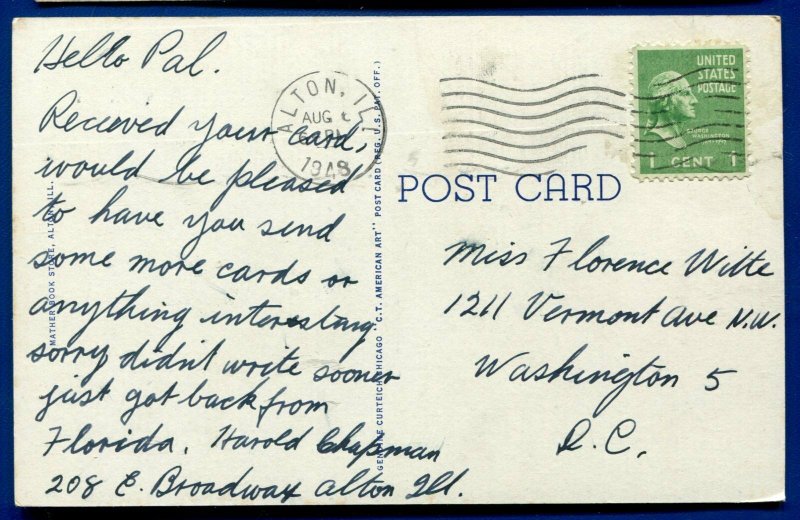 Hello Pal.
Received your card,
would be pleased
to have you send
some more cards or
anything interesting
sorry didn't write sooner
just got back from
Florida. Harold Chapman
208 E. Broadway Alton Ill.
MATHER BOOK STORE, ALTON, ILL.
GENUINE CURTEICH-CHICAGO "C.T. AMERICAN ART" POST CARD (REG. U.S. PAT. OFF.)
ALTON, ILL
AUG
1948
UNITED
STATES
POSTAGE
GEORGE
WASHINGTON
1 CENT 1
POST CARD
Miss Florence Witte
1211 Vermont Ave N.W.
Washington 5
D.C.